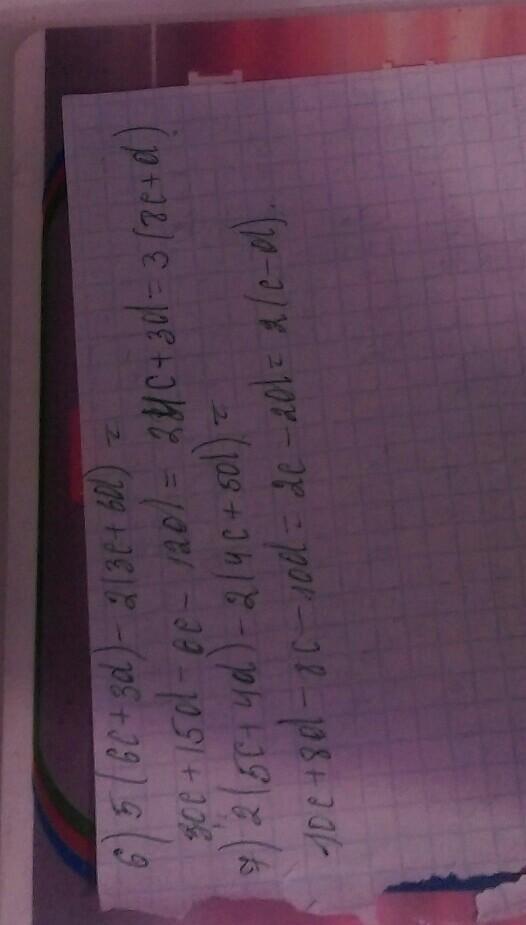 6) 5(6c+3d)-2(3c+6d) =
30c+15d-6c-12d = 24c+3d = 3(8c+d)
7) 2(5c+4d)-2(4c+5d) =
10c+8d-8c-10d = 2c-2d = 2(c-d).